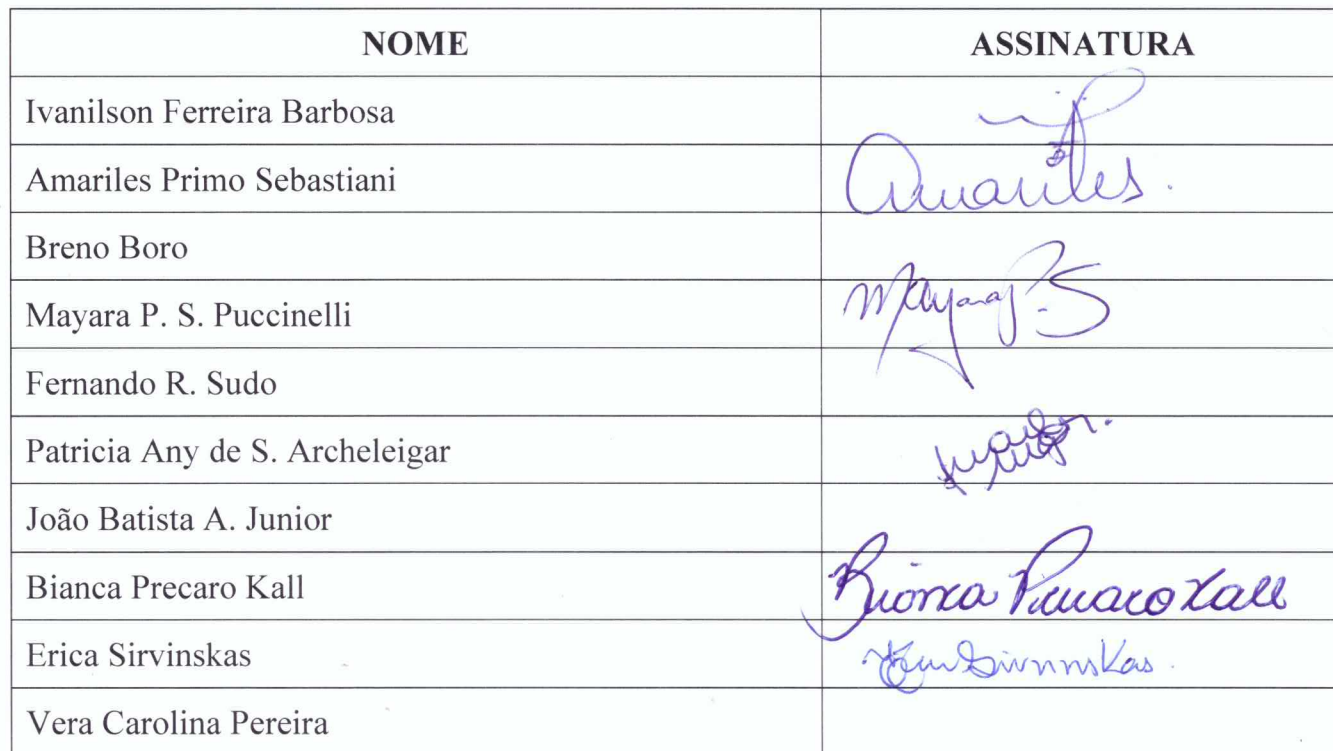 NOME ASSINATURA
Ivanilson Ferreira Barbosa
Amariles Primo Sebastiani Amariles.
Breno Boro
Mayara P. S. Puccinelli Mayara P. S
Fernando R. Sudo
Patricia Any de S. Archeleigar
João Batista A. Junior
Bianca Precaro Kall Bianca Precaro Kall
Erica Sirvinskas Sirvinskas.
Vera Carolina Pereira